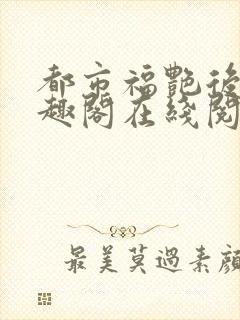 都市福艷後
趣閣在綫閱
最美莫過素顔